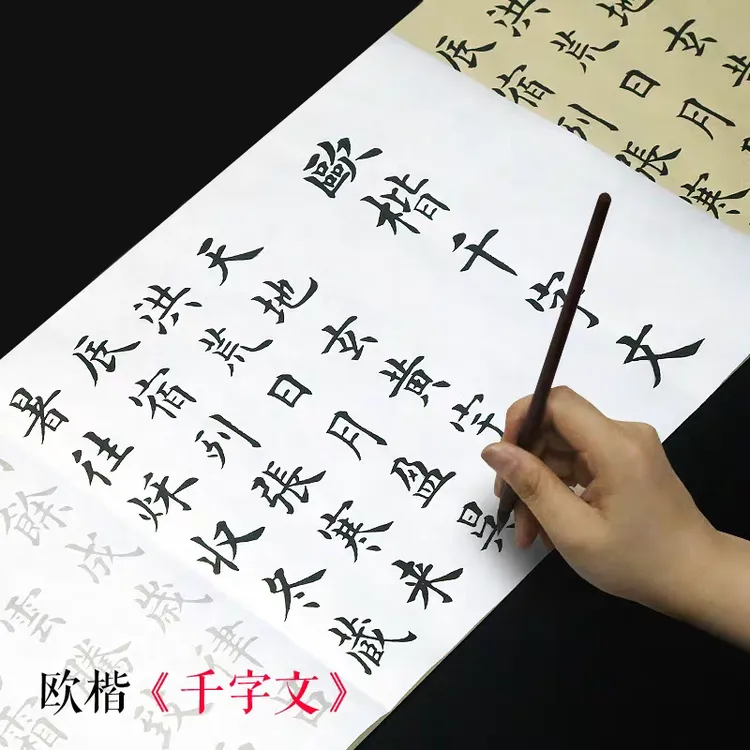 地玄黄
洪荒日月
辰宿列張寒
歐楷千字文
天地玄黄宇
洪荒日月盈昃
辰宿列張寒来
暑往秌收冬藏
餘成歲律
雲騰致
霜
欧楷《千字文》